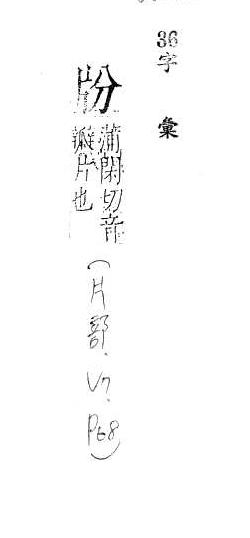 36字彙
蒲閑切音
瓣片也
(片部、V7、P68)